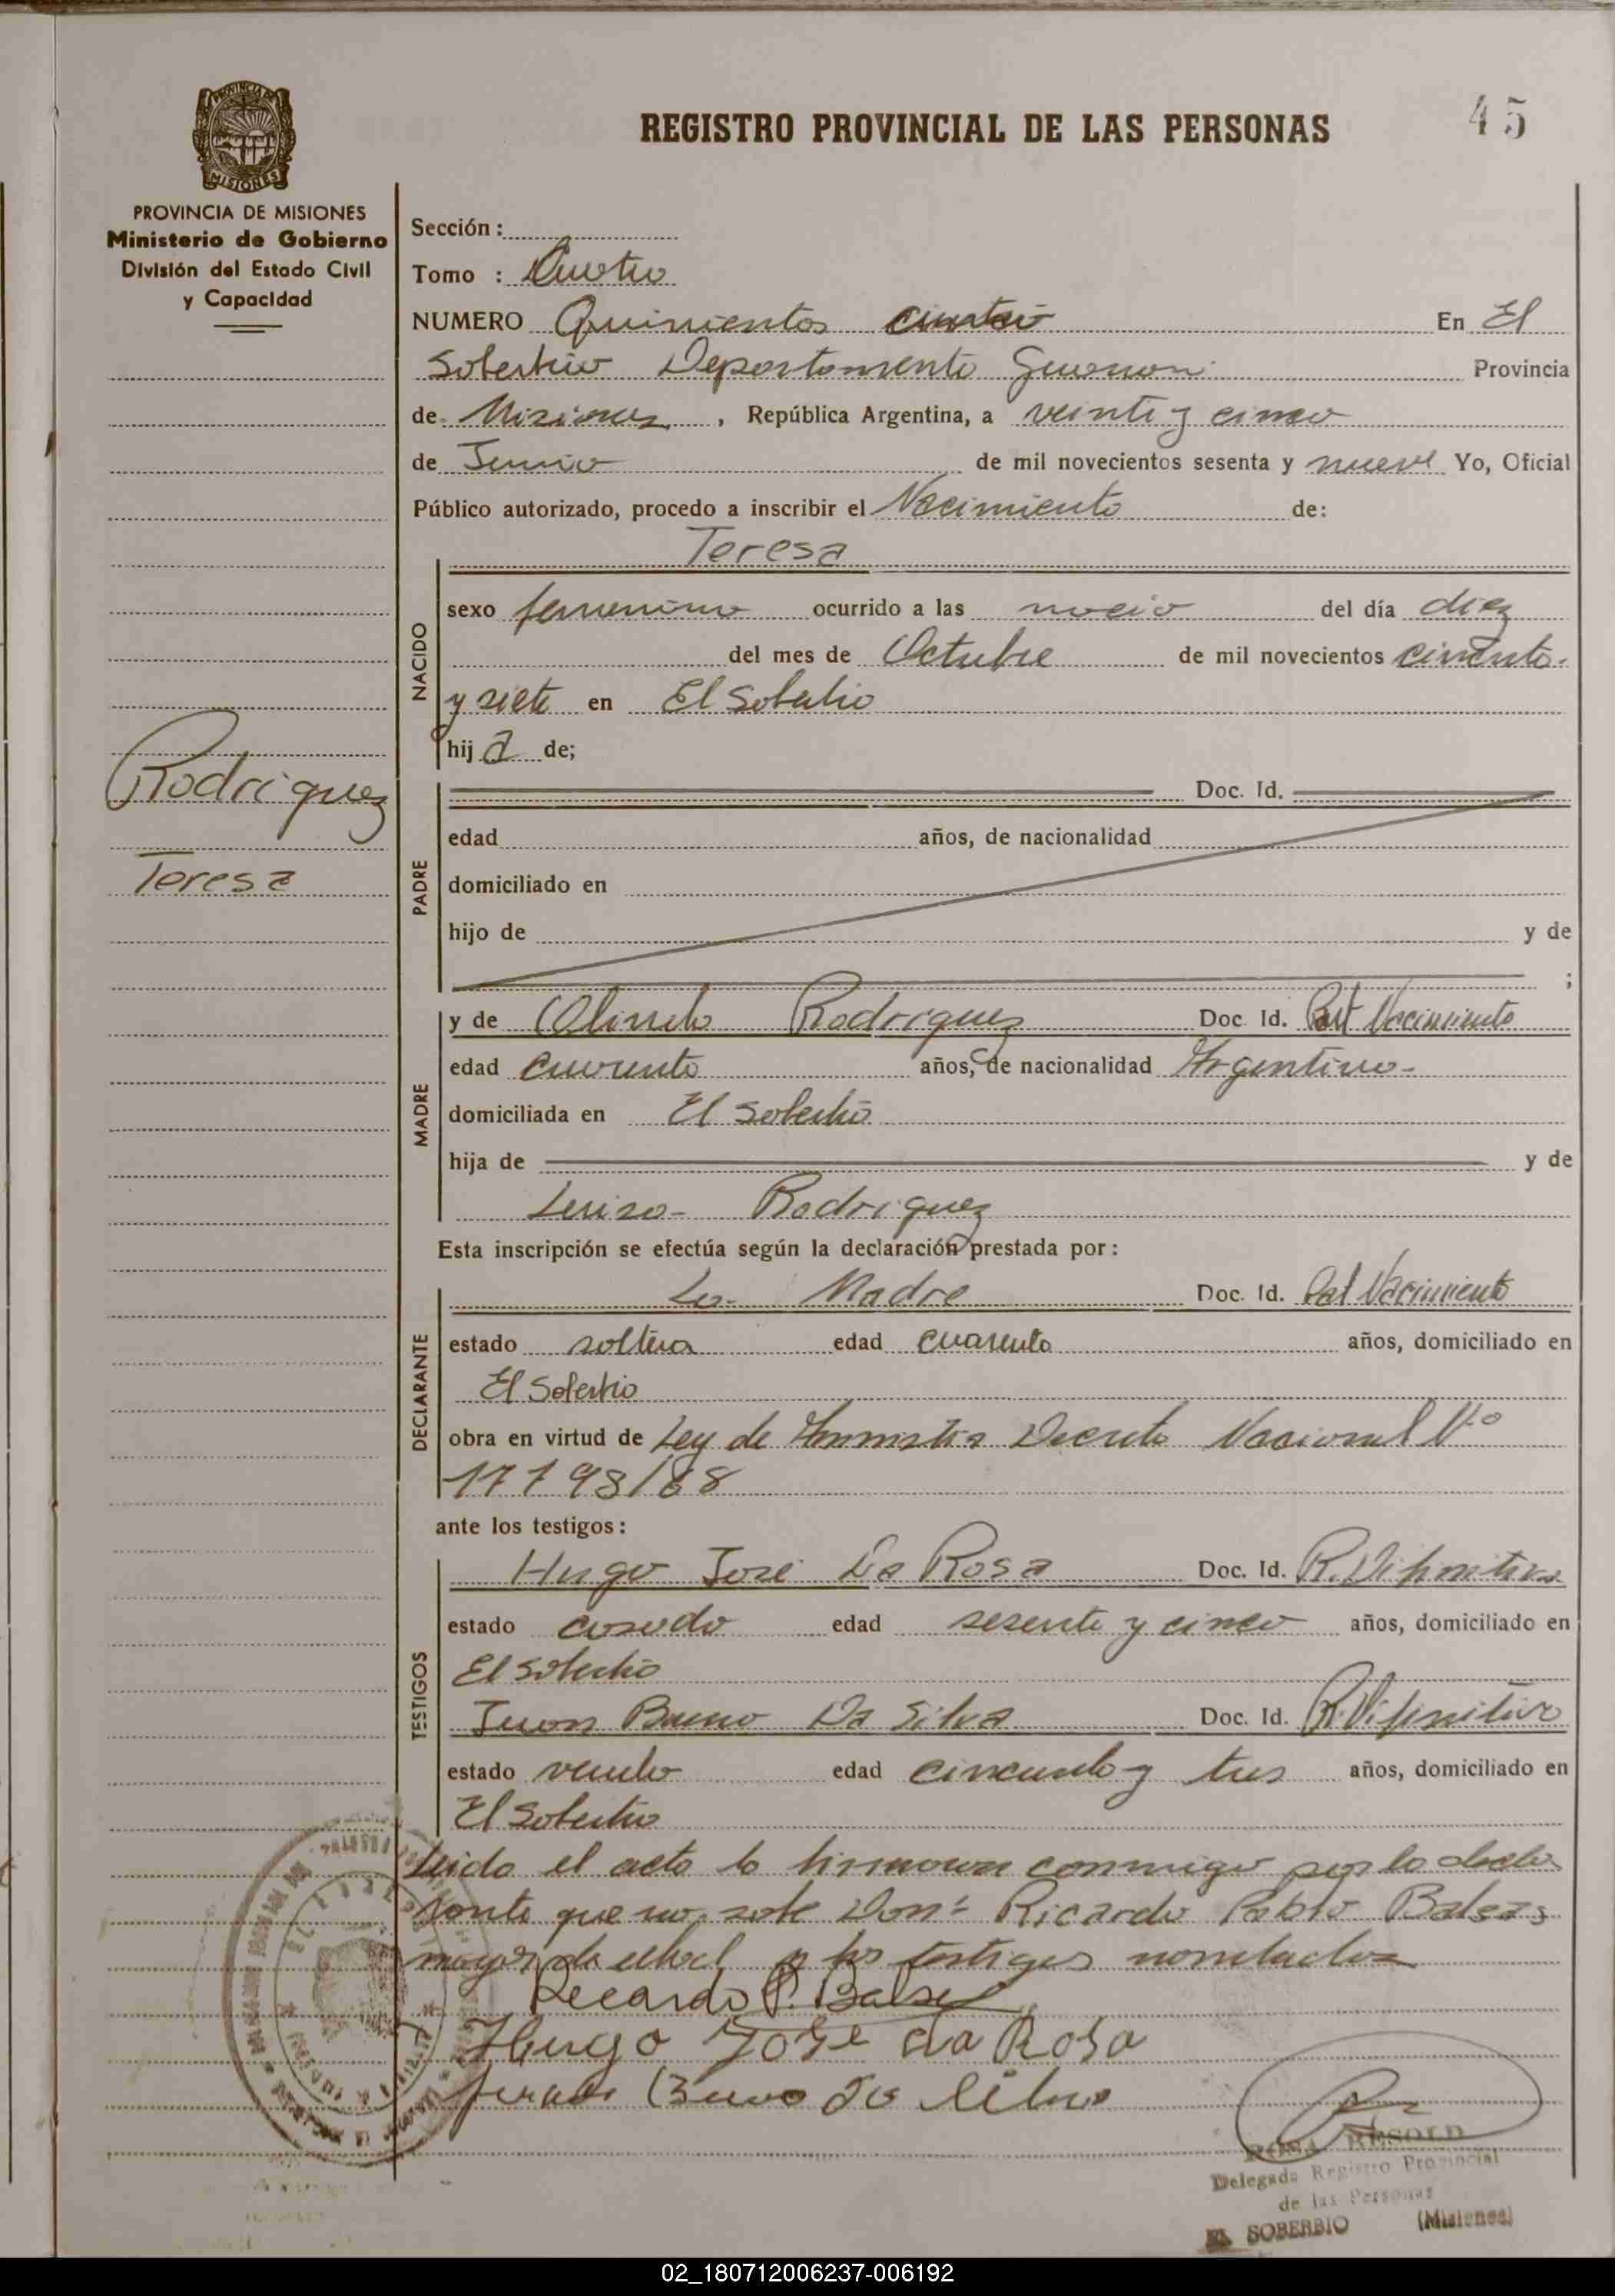 REGISTRO PROVINCIAL DE LAS PERSONAS
45
PROVINCIA DE
MISIONES
PROVINCIA DE MISIONES
Ministerio de Gobierno
División del Estado Civil
y Capacidad
Rodriguez
Teresa
Sección :
Tomo : Cuatro
NUMERO Quinientos cuatro En El
Soberbio Departamento Guarani Provincia
de Misiones , República Argentina, a veinti y cinco
de Junio de mil novecientos sesenta y nueve Yo, Oficial
Público autorizado, procedo a inscribir el Nacimiento de:
NACIDO
Teresa
sexo femenino ocurrido a las del día diez
del mes de Octubre de mil novecientos
y siete en El Soberbio
hija de;
PADRE
Doc. Id.
edad años, de nacionalidad
domiciliado en
hijo de y de
;
MADRE
y de Rodriguez Doc. Id. Part Nacimiento
edad cuarenta años, de nacionalidad Argentina-
domiciliada en El Soberbio
hija de y de
Luisa- Rodriguez
Esta inscripción se efectúa según la declaración prestada por:
DECLARANTE
La Madre Doc. Id. Part Nacimiento
estado soltera edad cuarenta años, domiciliado en
El Soberbio
obra en virtud de Ley de Amnistia Decreto Nacional Nº
17793/68
ante los testigos:
TESTIGOS
Hugo José Da Rosa Doc. Id. R. Difinitivo
estado casado edad sesenta y cinco años, domiciliado en
El Soberbio
Juan Bueno Da Silva Doc. Id. R. Difinitivo
estado edad cincuenta y tres años, domiciliado en
El Soberbio
Leida el acta la firmaron conmigo por la decla
rante que no sabe Don: Ricardo Pablo Balsas
mayor de edad y los testigos nombrados
Ricardo P. Balse
Hugo José da Rosa
Juan Bueno da Silva
ROSA RESOLD
Delegada Registro Provincial
de las Personas
EL SOBERBIO (Misiones)
02_180712006237-006192